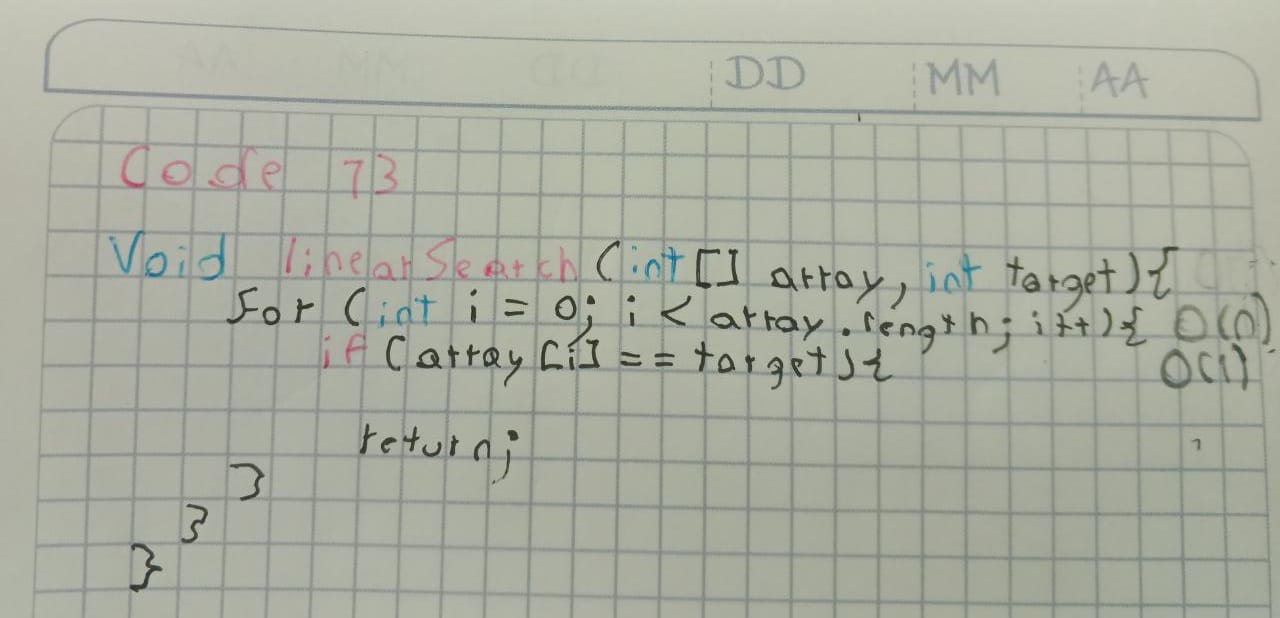 DD MM AA
Code 73
Void linearSearch (int[] array, int target){
For (int i = 0; i < array.length; i++){ O(n)
if (array[i] == target){ O(1)
return;
}
}
}